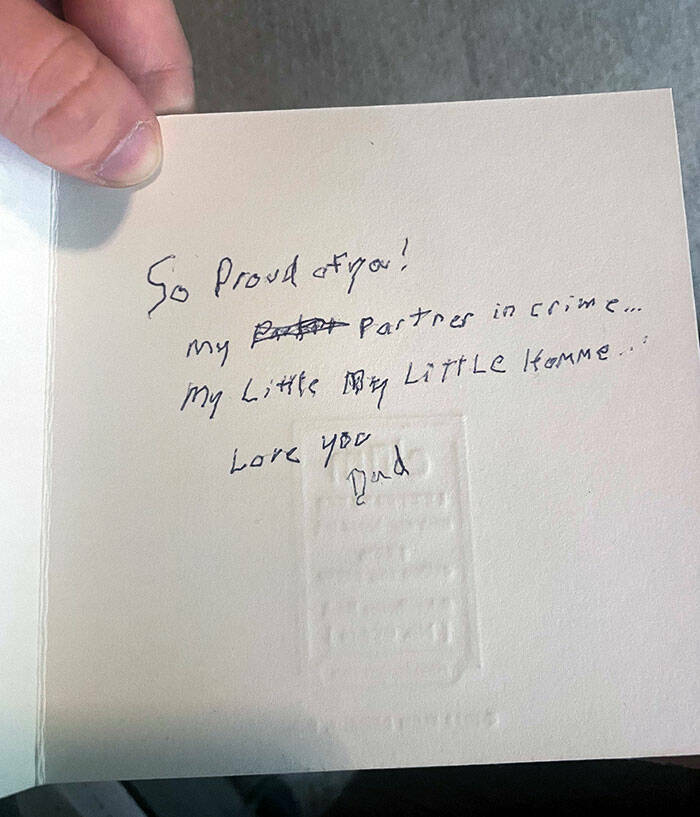 So Proud of you!
My Partner in crime...
My Little My Little Homme...
Love you
Dad